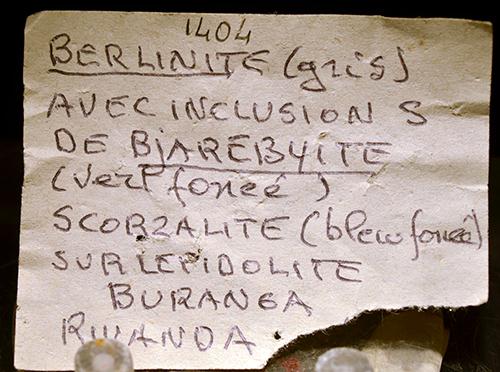 1404
BERLINITE (gris)
AVEC INCLUSIONS
DE BjAREBYITE
(vert foncé)
SCORZALITE (bleu foncé)
SUR LEPIDOLITE
BURANGA
RWANDA